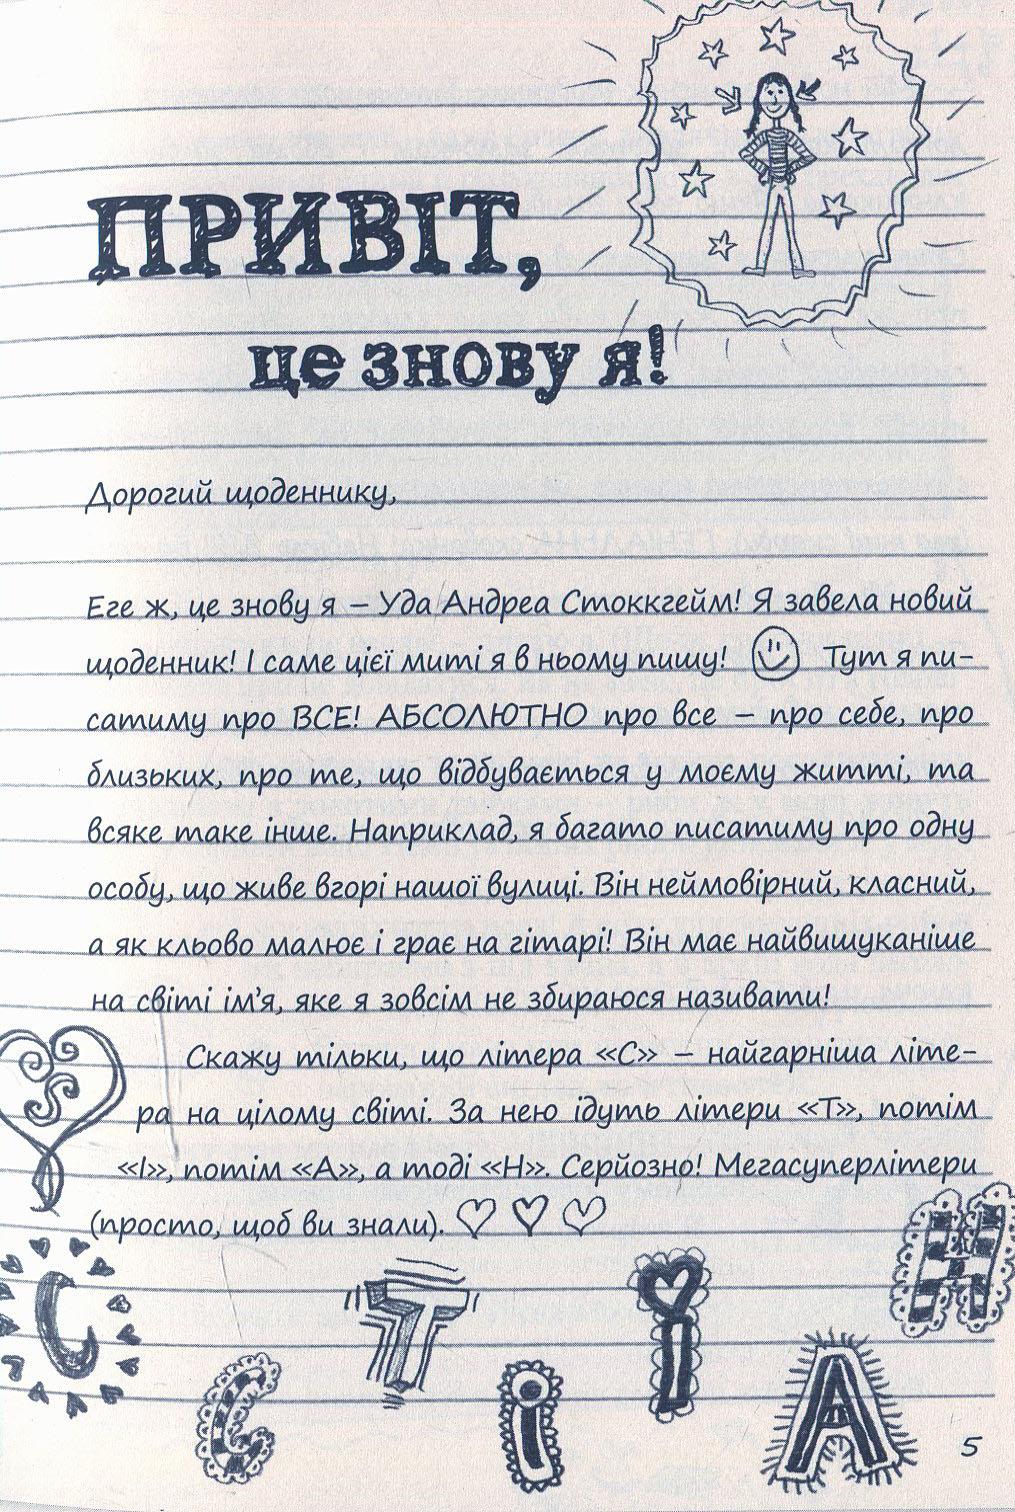 ПРИВІТ,
це знову я!
Дорогий щоденнику,
Еге ж, це знову я – Уда Андреа Стоккгейм! Я завела новий
щоденник! І саме цієї миті я в ньому пишу! Тут я пи-
сатиму про ВСЕ! АБСОЛЮТНО про все – про себе, про
близьких, про те, що відбувається у моєму житті, та
всяке таке інше. Наприклад, я багато писатиму про одну
особу, що живе вгорі нашої вулиці. Він неймовірний, класний,
а як кльово малює і грає на гітарі! Він має найвишуканіше
на світі ім'я, яке я зовсім не збираюся називати!
Скажу тільки, що літера «С» – найгарніша літе-
ра на цілому світі. За нею ідуть літери «Т», потім
«І», потім «А», а тоді «Н». Серйозно! Мегасуперлітери
(просто, щоб ви знали).
С Т І Н
С і А
5